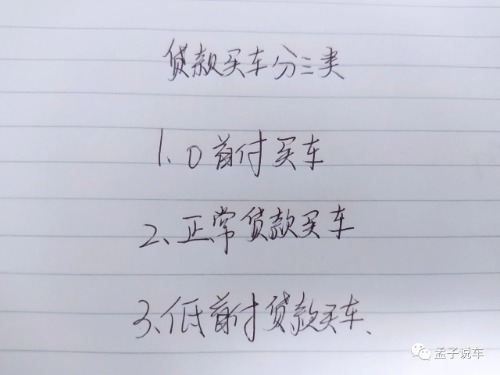 贷款买车分三类
1、0首付买车
2、正常贷款买车
3、低首付贷款买车、
孟子说车